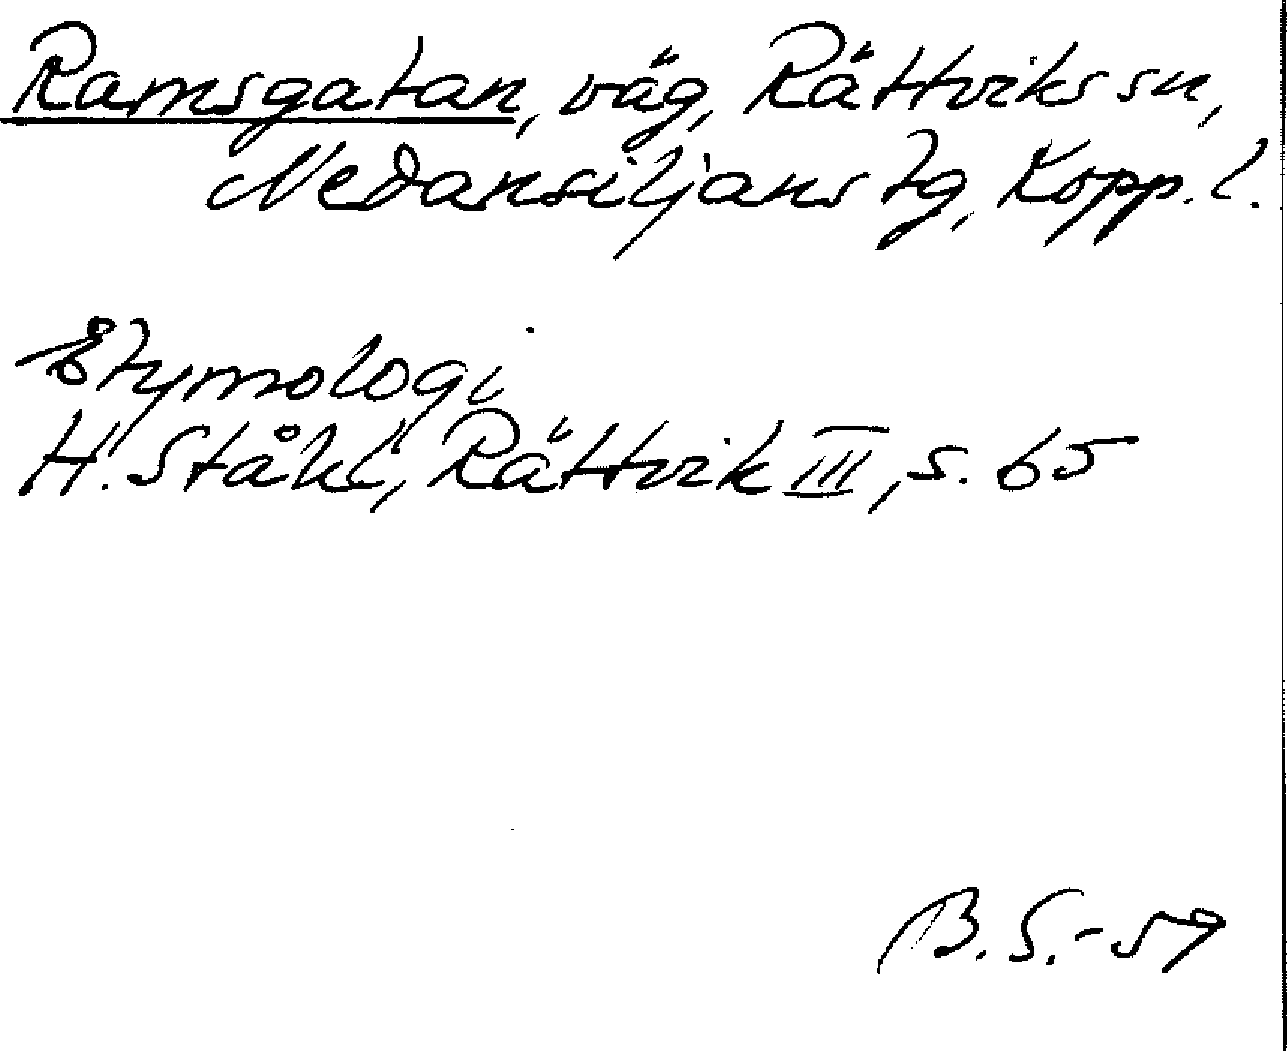 Ramsgatan, väg, Rättviks sn,
Nedansiljans tg, Kopp. l.
Etymologi
H. Ståhl, Rättvik III, s. 65
B. S. - 59